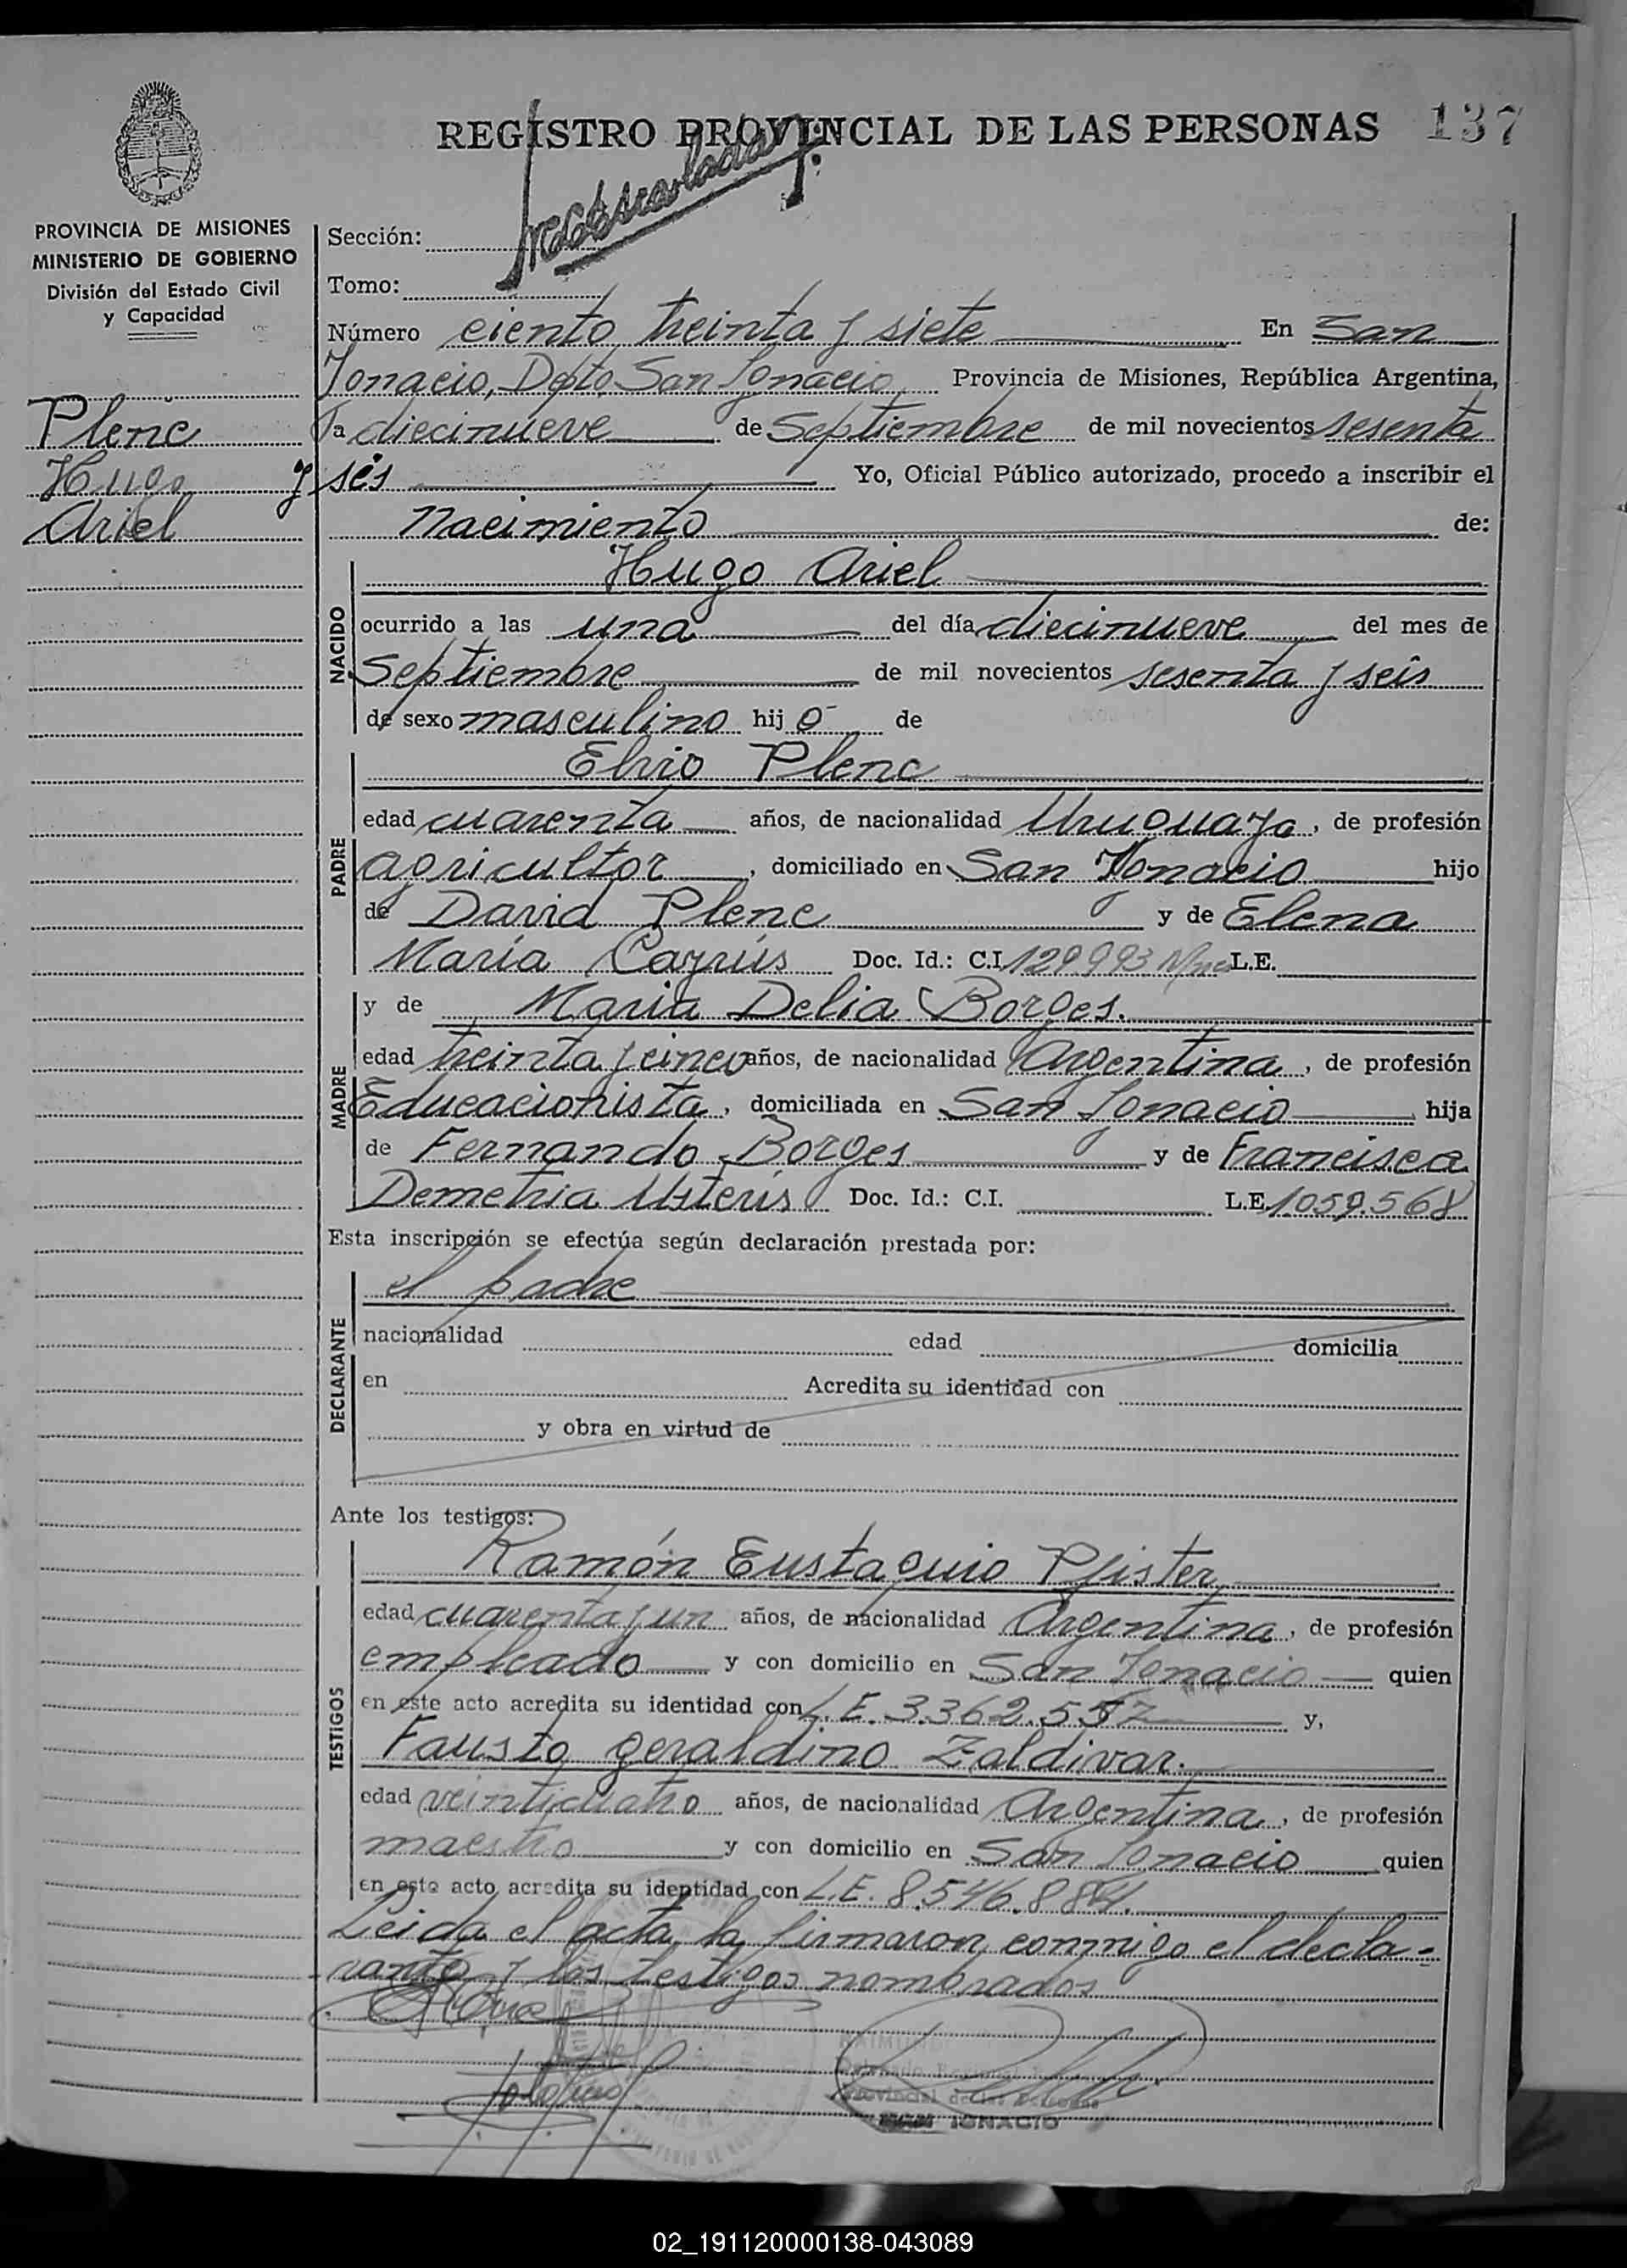 REGISTRO PROVINCIAL DE LAS PERSONAS 137
PROVINCIA DE MISIONES
MINISTERIO DE GOBIERNO
División del Estado Civil
y Capacidad
Plenc
Hugo
Ariel
Sección:
Tomo:
Número ciento treinta y siete En San
Ignacio, Dpto. San Ignacio, Provincia de Misiones, República Argentina,
a diecinueve de Septiembre de mil novecientos sesenta
y séis Yo, Oficial Público autorizado, procedo a inscribir el
nacimiento de:
NACIDO
Hugo Ariel
ocurrido a las una del día diecinueve del mes de
Septiembre de mil novecientos sesenta y seis
de sexo masculino hijo de
PADRE
Elvio Plenc
edad cuarenta años, de nacionalidad Uruguaya, de profesión
agricultor, domiciliado en San Ignacio hijo
de David Plenc y de Elena
María Cayrús Doc. Id.: C.I. 129.993 L.E.
MADRE
y de Maria Delia Borges.
edad treinta y cinco años, de nacionalidad Argentina, de profesión
Educacionista, domiciliada en San Ignacio hija
de Fernando Borges y de Francisca
Demetria Doc. Id.: C.I. L.E. 1059.568
Esta inscripción se efectúa según declaración prestada por:
DECLARANTE
el padre
nacionalidad edad domicilia
en Acredita su identidad con
y obra en virtud de
Ante los testigos:
TESTIGOS
Ramón Eustaquio Pfister,
edad cuarenta y un años, de nacionalidad Argentina, de profesión
empleado y con domicilio en San Ignacio quien
en este acto acredita su identidad con L.E. 3.362.557 y,
Fausto Geraldino Zaldivar.
edad veinticuatro años, de nacionalidad Argentina, de profesión
maestro y con domicilio en San Ignacio quien
en este acto acredita su identidad con L.E. 8.546.884.
Leida el acta, la firmaron conmigo el decla-
rante y los testigos nombrados
SAN IGNACIO
02_191120000138-043089